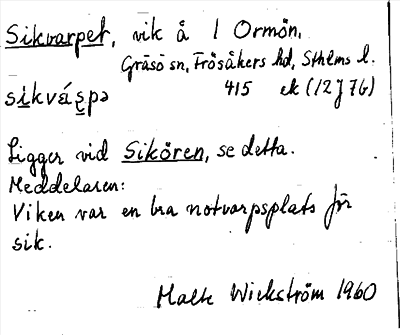 Sikvarpet, vik å 1 Ormön,
Gräsö sn, Frösåkers hd, Sthlms l.
sikvás̥pə 415 ek (12J7b)
Ligger vid Siköven, se detta.
Meddelaren:
Viken var en bra notvarpsplats för
sik.
Malte Wickström 1960